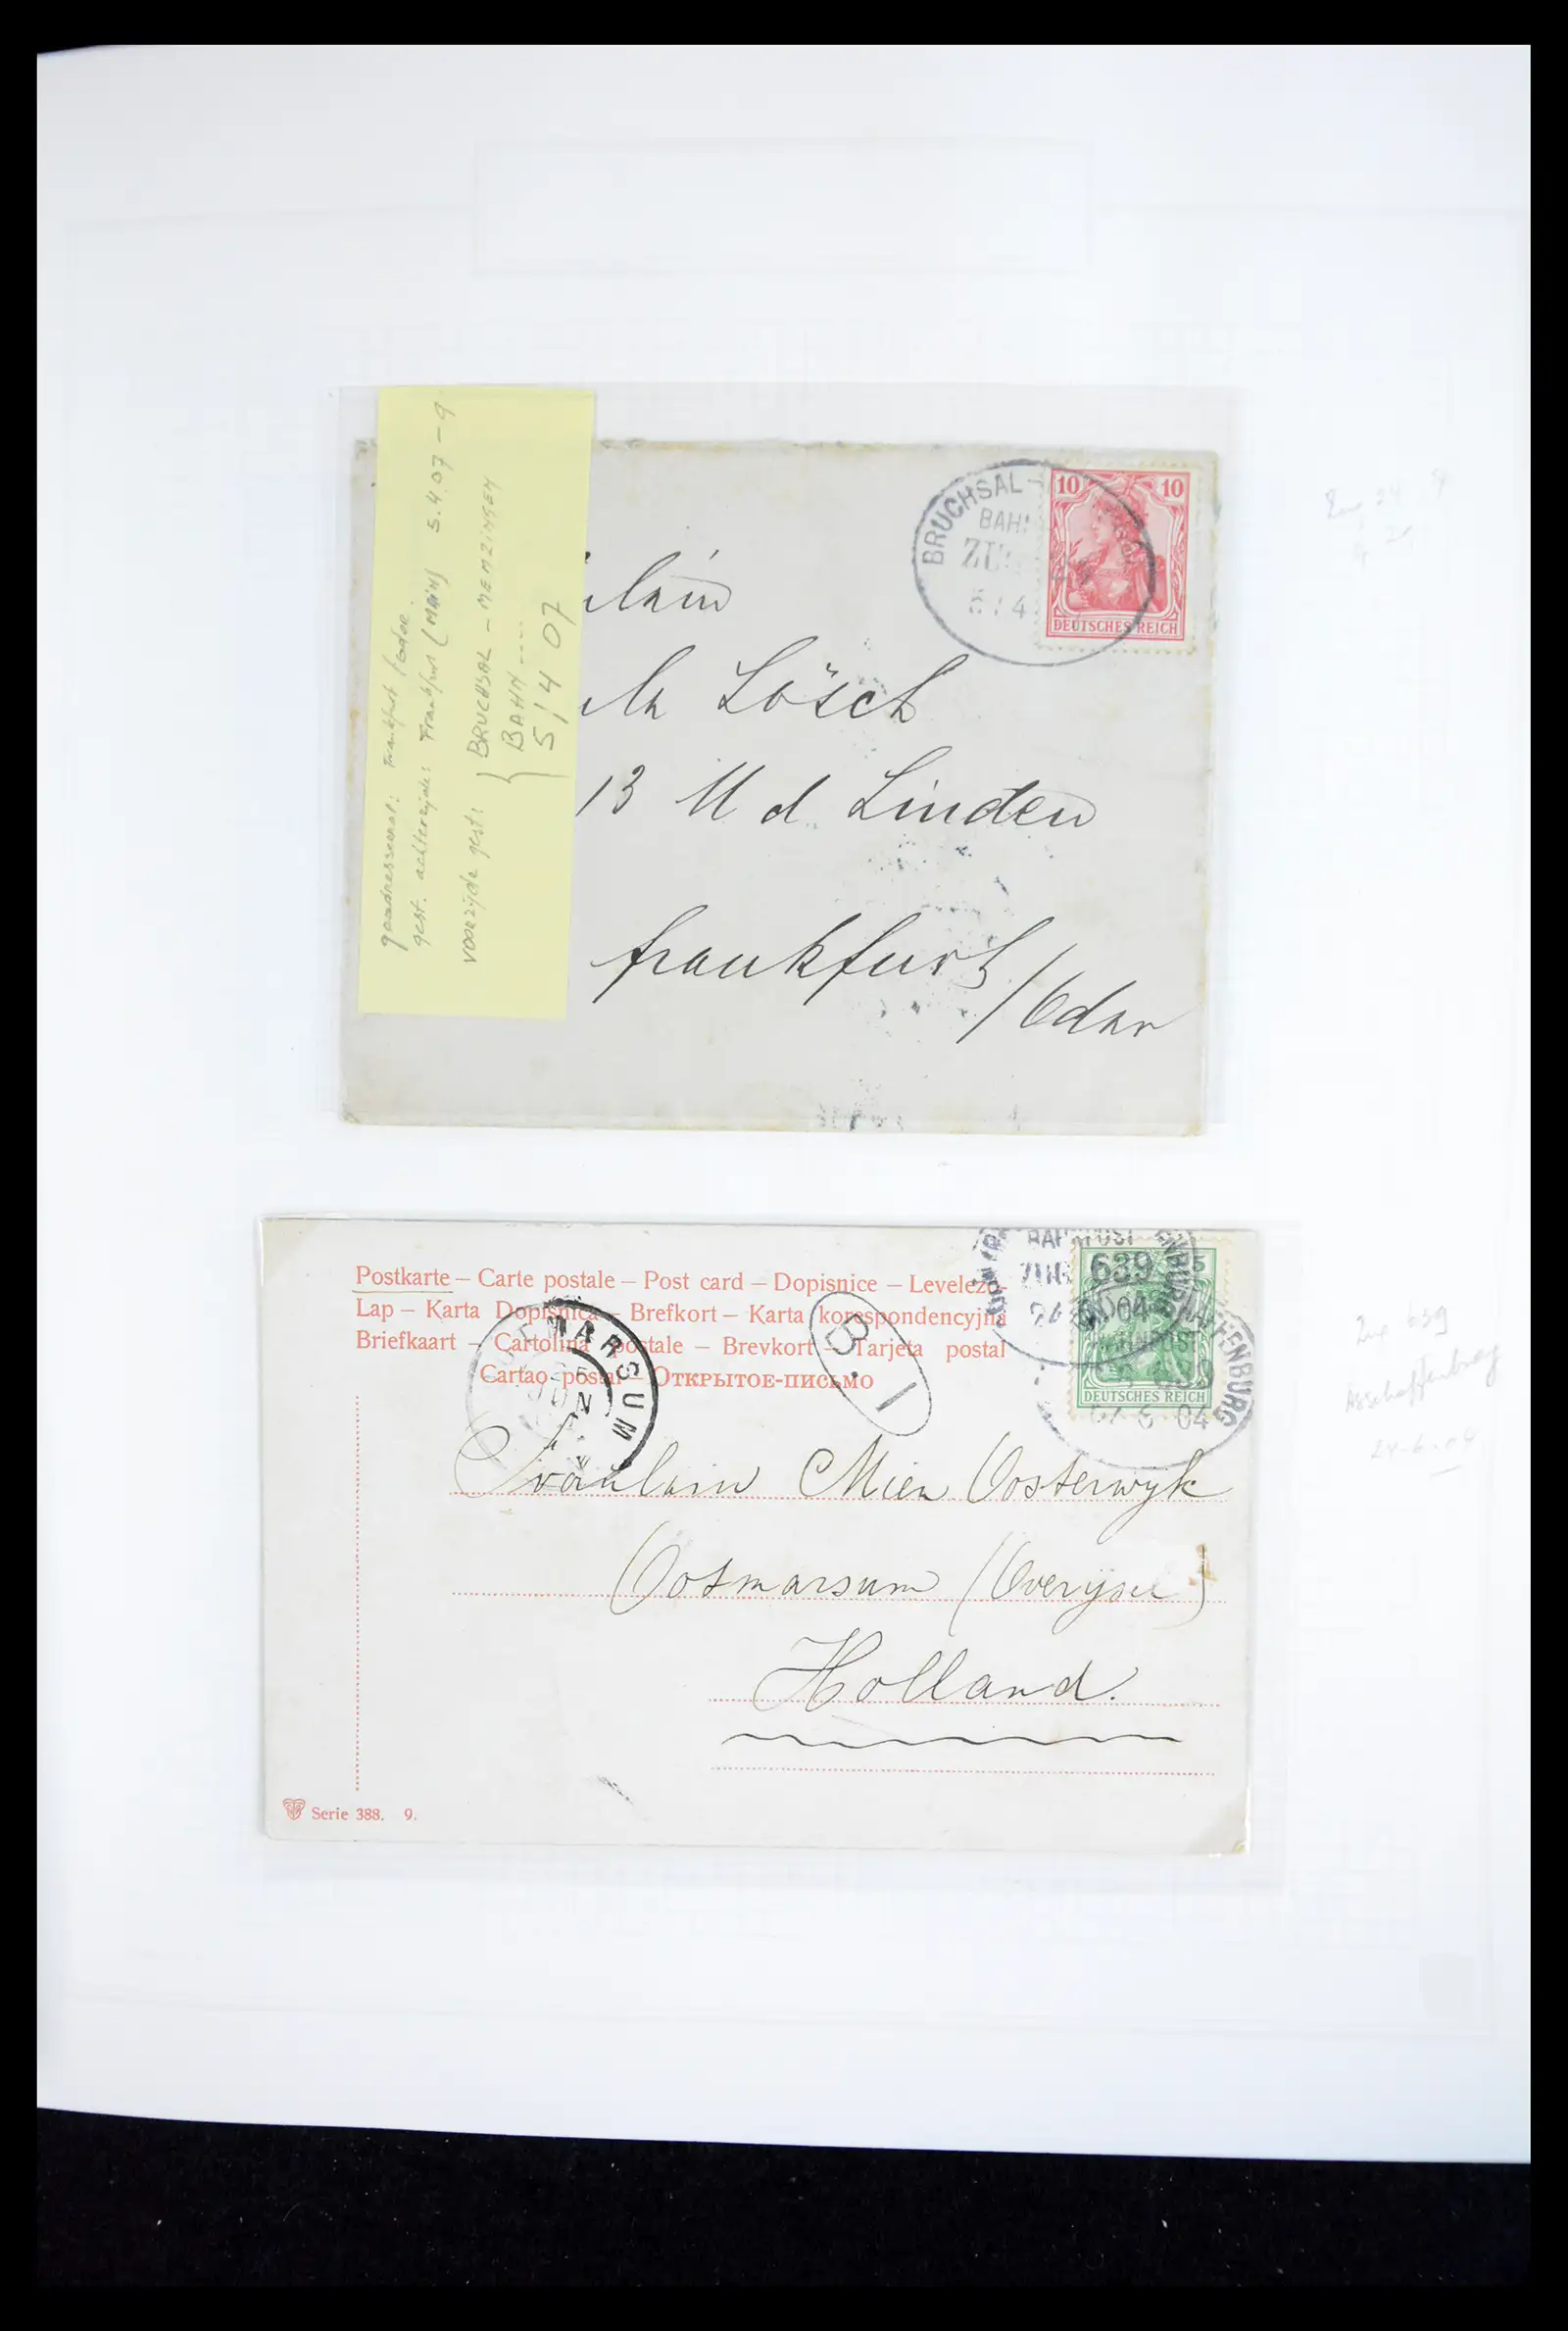 geadresseerd: Frankfurt/Oder.
gest. achterzijde: Frankfurt (Main) 5.4.07-9
voorzijde gest:
BRUCHSAL - MEMZINGEN
BAHN ----
5/4 07
BRUCHSAL -
BAH
5 4
10 10
DEUTSCHES REICH
Lösch
13 U d Linden
frankfurt
/Oder
Postkarte – Carte postale – Post card – Dopisnice – Levelezo-
Lap – Karta Dopisnica – Brefkort – Karta korespondencyjna
Briefkaart – Cartolina postale – Brevkort – Tarjeta postal
Cartao postal – Открытое-письмо
MARSUM
B. I
BAHNPOST
ZUG 639
24 6 04
5
DEUTSCHES REICH
HENBURG
6 04
Fräulein Mien Oosterwyk
Ootmarsum (Overijsel)
Holland.
Serie 388. 9.
Zug 639
Asschaffenburg
24-6-04